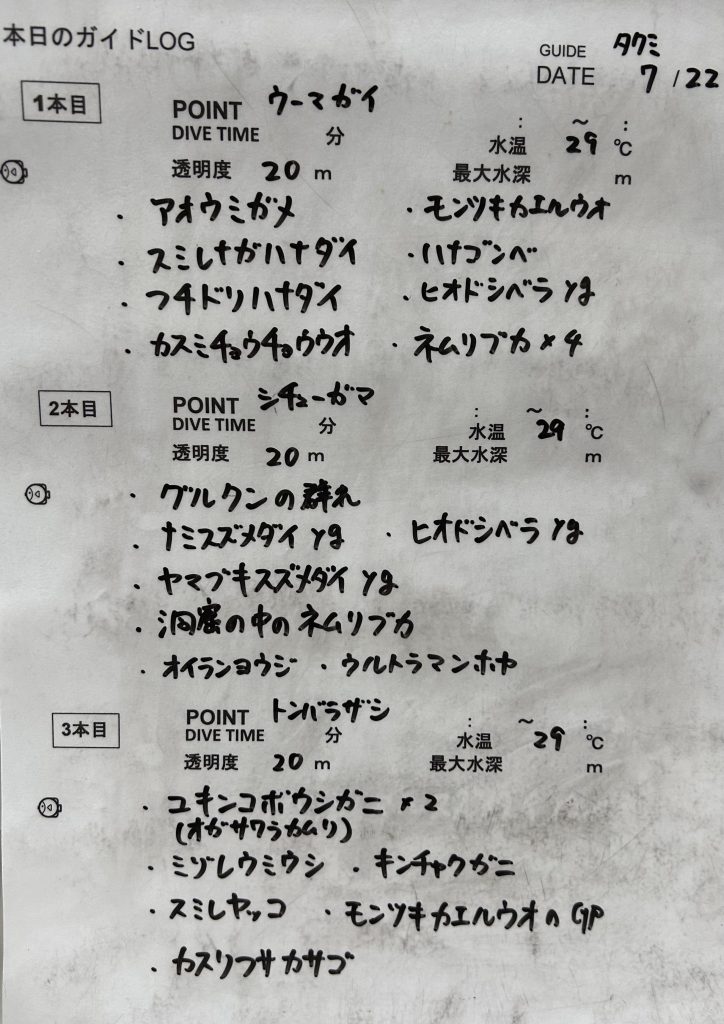 本日のガイドLOG
GUIDE タクミ
DATE 7/22
1本目 POINT ウーマガイ : ～ :
DIVE TIME 分 水温 29 ℃
透明度 20 m 最大水深 m
・アオウミガメ ・モンツキカエルウオ
・スミレナガハナダイ ・ハナゴンベ
・フチドリハナダイ ・ヒオドシベラ yg
・カスミチョウチョウウオ ・ネムリブカ×4
2本目 POINT シチューガマ : ～ :
DIVE TIME 分 水温 29 ℃
透明度 20 m 最大水深 m
・グルクンの群れ
・ナミスズメダイ yg ・ヒオドシベラ yg
・ヤマブキスズメダイ yg
・洞窟の中のネムリブカ
・オイランヨウジ ・ウルトラマンホヤ
3本目 POINT トンバラザシ : ～ :
DIVE TIME 分 水温 29 ℃
透明度 20 m 最大水深 m
・ユキンコボウシガニ ×2
(オガサワラカムリ)
・ミゾレウミウシ ・キンチャクガニ
・スミレヤッコ ・モンツキカエルウオの GP
・カスリフサカサゴ